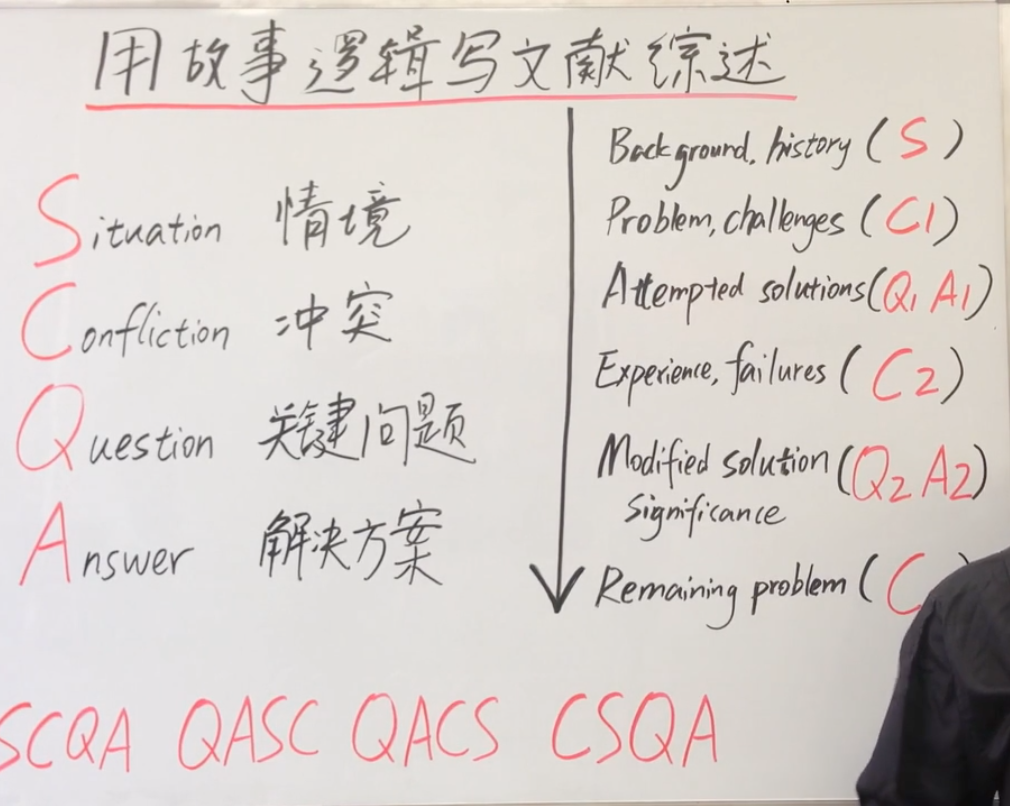 用故事逻辑写文献综述
Situation 情境
Confliction 冲突
Question 关键问题
Answer 解决方案
Background, history (S)
Problem, challenges (C1)
Attempted solutions (Q1 A1)
Experience, failures (C2)
Modified solution (Q2 A2)
significance
Remaining problem (C )
SCQA QASC QACS CSQA